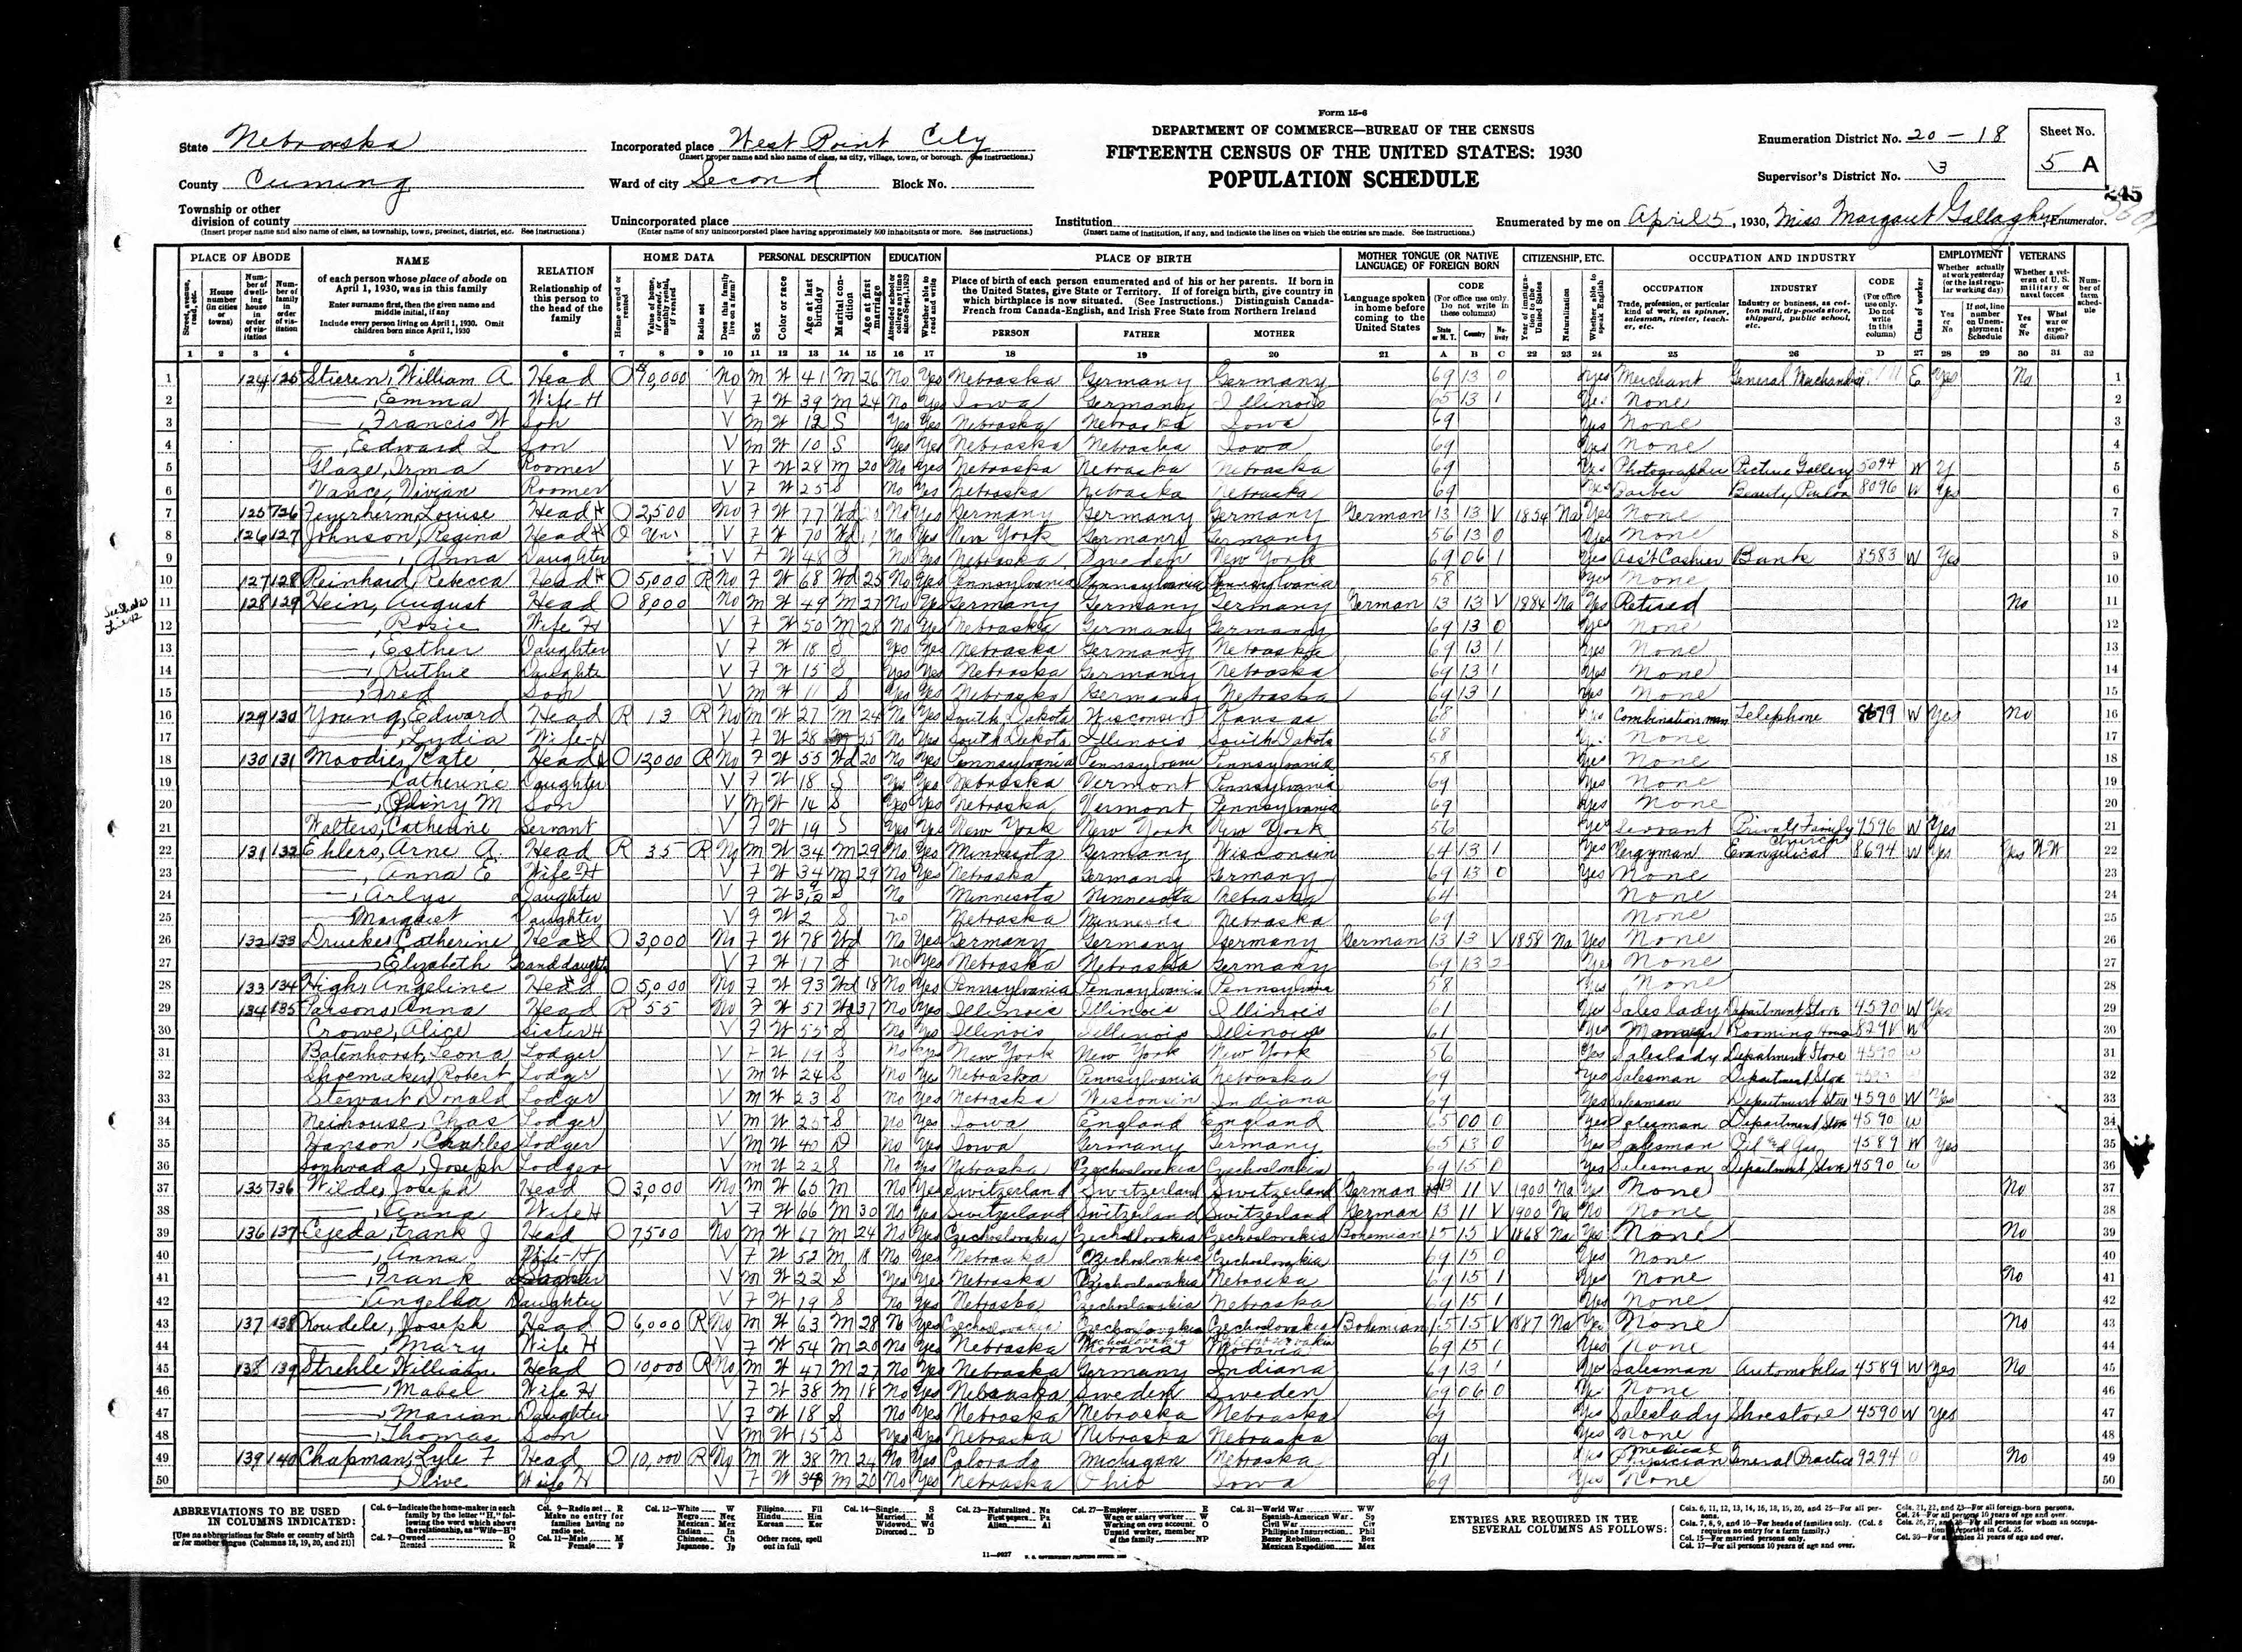 Form 15-6
DEPARTMENT OF COMMERCE—BUREAU OF THE CENSUS
FIFTEENTH CENSUS OF THE UNITED STATES: 1930
POPULATION SCHEDULE
State Nebraska
Incorporated place West Point City
(Insert proper name and also name of class, as city, village, town, or borough. See instructions.)
Enumeration District No. 20-18
Sheet No.
5 A
County Cuming
Ward of city Second Block No.
Supervisor's District No. 3
245
Township or other division of county
(Insert proper name and also name of class, as township, town, precinct, district, etc. See instructions.)
Unincorporated place
(Enter name of any unincorporated place having approximately 500 inhabitants or more. See instructions.)
Institution
(Insert name of institution, if any, and indicate the lines on which the entries are made. See instructions.)
Enumerated by me on April 5, 1930, Miss Margaret Gallagher, Enumerator.
PLACE OF ABODE NAME RELATION HOME DATA PERSONAL DESCRIPTION EDUCATION PLACE OF BIRTH MOTHER TONGUE (OR NATIVE LANGUAGE) OF FOREIGN BORN CITIZENSHIP, ETC. OCCUPATION AND INDUSTRY EMPLOYMENT VETERANS
of each person whose place of abode on April 1, 1930, was in this family
Enter surname first, then the given name and middle initial, if any
Include every person living on April 1, 1930. Omit children born since April 1, 1930
Relationship of this person to the head of the family
Place of birth of each person enumerated and of his or her parents. If born in the United States, give State or Territory. If of foreign birth, give country in which birthplace is now situated. (See Instructions.) Distinguish Canada-French from Canada-English, and Irish Free State from Northern Ireland
PERSON FATHER MOTHER
Language spoken in home before coming to the United States
OCCUPATION INDUSTRY CODE
1 2 3 4 5 6 7 8 9 10 11 12 13 14 15 16 17 18 19 20 21 A B C 22 23 24 25 26 D 27 28 29 30 31 32
1 124 125 Stieren, William A Head O 10,000 No M W 41 M 26 No Yes Nebraska Germany Germany 69 13 0 Yes Merchant General Merchandise E Yes No 1
2 —, Emma Wife-H V F W 39 M 24 No Yes Iowa Germany Illinois 65 13 1 Yes None 2
3 —, Francis W Son V M W 12 S Yes Yes Nebraska Nebraska Iowa 69 Yes None 3
4 —, Edward L Son V M W 10 S Yes Yes Nebraska Nebraska Iowa 69 Yes None 4
5 Glaze, Irma Roomer V F W 28 M 20 No Yes Nebraska Nebraska Nebraska 69 Yes Photographer Picture Gallery 5094 W Y 5
6 Vance, Vivian Roomer V F W 25 S No Yes Nebraska Nebraska Nebraska 69 Yes Barber Beauty Parlor 8096 W Yes 6
7 125 126 Feyerherm, Louise Head H O 2,500 No F W 77 Wd No Yes Germany Germany Germany German 13 13 V 1854 Na Yes None 7
8 126 127 Johnson, Regina Head H O Un. V F W 70 Wd No Yes New York Germany Germany 56 13 0 Yes None 8
9 —, Anna Daughter V F W 48 S No Yes Nebraska Sweden New York 69 06 1 Yes Ass't Cashier Bank 8583 W Yes 9
10 127 128 Reinhard, Rebecca Head H O 5,000 R No F W 68 Wd 25 No Yes Pennsylvania Pennsylvania Pennsylvania 58 Yes None 10
11 128 129 Hein, August Head O 8,000 No M W 49 M 27 No Yes Germany Germany Germany German 13 13 V 1884 Na Yes Retired No 11
12 —, Rosie Wife H V F W 50 M 28 No Yes Nebraska Germany Germany 69 13 0 Yes None 12
13 —, Esther Daughter V F W 18 S Yes Yes Nebraska Germany Nebraska 69 13 1 Yes None 13
14 —, Ruthie Daughter V F W 15 S Yes Yes Nebraska Germany Nebraska 69 13 1 Yes None 14
15 —, Fred Son V M W 11 S Yes Yes Nebraska Germany Nebraska 69 13 1 Yes None 15
16 129 130 Young, Edward Head R 13 R No M W 27 M 24 No Yes South Dakota Wisconsin Kansas 68 Yes Combination man Telephone 8679 W Yes No 16
17 —, Lydia Wife-H V F W 28 M 25 No Yes South Dakota Illinois South Dakota 68 None 17
18 130 131 Moodie, Kate Head H O 12,000 R No F W 55 Wd 20 No Yes Pennsylvania Pennsylvania Pennsylvania 58 Yes None 18
19 —, Catherine Daughter V F W 18 S Yes Yes Nebraska Vermont Pennsylvania 69 Yes None 19
20 —, Pliny M Son V M W 14 S Yes Yes Nebraska Vermont Pennsylvania 69 Yes None 20
21 Walters, Catherine Servant V F W 19 S Yes Yes New York New York New York 56 Yes Servant Private Family 9596 W Yes 21
22 131 132 Ehlers, Arne A. Head R 35 R No M W 34 M 29 No Yes Minnesota Germany Wisconsin 64 13 1 Yes Clergyman Evangelical Church 8694 W Yes Yes WW 22
23 —, Anna E Wife H V F W 34 M 29 No Yes Nebraska Germany Germany 69 13 0 Yes None 23
24 —, Arlys Daughter V F W S No Minnesota Minnesota Nebraska 64 None 24
25 — Margaret Daughter V F W 2 S No Nebraska Minnesota Nebraska 69 None 25
26 132 133 Druekes, Catherine Head H O 3,000 No F W 78 Wd No Yes Germany Germany Germany German 13 13 V 1858 Na Yes None 26
27 —, Elizabeth Granddaughter V F W 17 S No Yes Nebraska Nebraska Germany 69 13 2 Yes None 27
28 133 134 High, Angeline Head H O 5,000 No F W 93 Wd 18 No Yes Pennsylvania Pennsylvania Pennsylvania 58 Yes None 28
29 134 135 Parsons, Anna Head R 55 No F W 57 Wd 37 No Yes Illinois Illinois Illinois 61 Yes Saleslady Department Store 4590 W Yes 29
30 Crowe, Alice Sister H V F W 55 S No Yes Illinois Illinois Illinois 61 Yes Manager Rooming House 829V W 30
31 Batenhorst, Leona Lodger V F W 19 S No Yes New York New York New York 56 Yes Saleslady Department Store 4590 W 31
32 Shoemaker, Robert Lodger V M W 24 S No Yes Nebraska Pennsylvania Nebraska 69 Yes Salesman Department Store 4590 32
33 Stewart, Donald Lodger V M W 23 S No Yes Nebraska Wisconsin Indiana 69 Yes Salesman Department Store 4590 W Yes 33
34 Neihouse, Chas Lodger V M W 25 S No Yes Iowa England England 65 00 0 Yes Salesman Department Store 4590 W 34
35 Hanson, Charles Lodger V M W 40 D No Yes Iowa Germany Germany 65 13 0 Yes Salesman Oil and Gas 4589 W Yes 35
36 Joseph Lodger V M W 22 S No Yes Nebraska Czechoslovakia Czechoslovakia 69 15 0 Yes Salesman Department Store 4590 W 36
37 135 136 Wilde, Joseph Head O 3,000 No M W 65 M No Yes Switzerland Switzerland Switzerland German 13 11 V 1900 Na Yes None No 37
38 —, Anna Wife H V F W 66 M 30 No Yes Switzerland Switzerland Switzerland German 13 11 V 1900 Na No None 38
39 136 137 Cejda, Frank J Head O 7,500 No M W 67 M 24 No Yes Czechoslovakia Czechoslovakia Czechoslovakia Bohemian 15 15 V 1868 Na Yes None No 39
40 —, Anna Wife-H V F W 52 M 18 No Yes Nebraska Czechoslovakia Czechoslovakia 69 15 0 Yes None 40
41 —, Frank V M W 22 S Yes Yes Nebraska Czechoslovakia Nebraska 69 15 1 Yes None No 41
42 — Angelka Daughter V F W 19 S No Yes Nebraska Czechoslovakia Nebraska 69 15 1 Yes None 42
43 137 138 Koudele, Joseph Head O 6,000 R No M W 63 M 28 No Yes Czechoslovakia Czechoslovakia Czechoslovakia Bohemian 15 15 V 1887 Na Yes None No 43
44 —, Mary Wife H V F W 54 M 20 No Yes Nebraska Czechoslovakia Moravia Czechoslovakia Moravia 69 15 1 Yes None 44
45 138 139 Strehle William Head O 10,000 R No M W 47 M 27 No Yes Nebraska Germany Indiana 69 13 1 Yes Salesman Automobiles 4589 W Yes No 45
46 —, Mabel Wife H V F W 38 M 18 No Yes Nebraska Sweden Sweden 69 06 0 Yes None 46
47 —, Marian Daughter V F W 18 S No Yes Nebraska Nebraska Nebraska 69 Yes Saleslady Shoestore 4590 W Yes 47
48 —, Thomas Son V M W 15 S Yes Yes Nebraska Nebraska Nebraska 69 Yes None 48
49 139 140 Chapman, Lyle F Head O 10,000 R No M W 38 M 24 No Yes Colorado Michigan Nebraska 91 Yes Medical Physician General Practice 9294 O No 49
50 —, Olive Wife H V F W 34 M 20 No Yes Nebraska Ohio Iowa 69 Yes None 50
ABBREVIATIONS TO BE USED IN COLUMNS INDICATED:
[Use no abbreviations for State or country of birth or for mother tongue (Columns 18, 19, 20, and 21)]
ENTRIES ARE REQUIRED IN THE SEVERAL COLUMNS AS FOLLOWS: